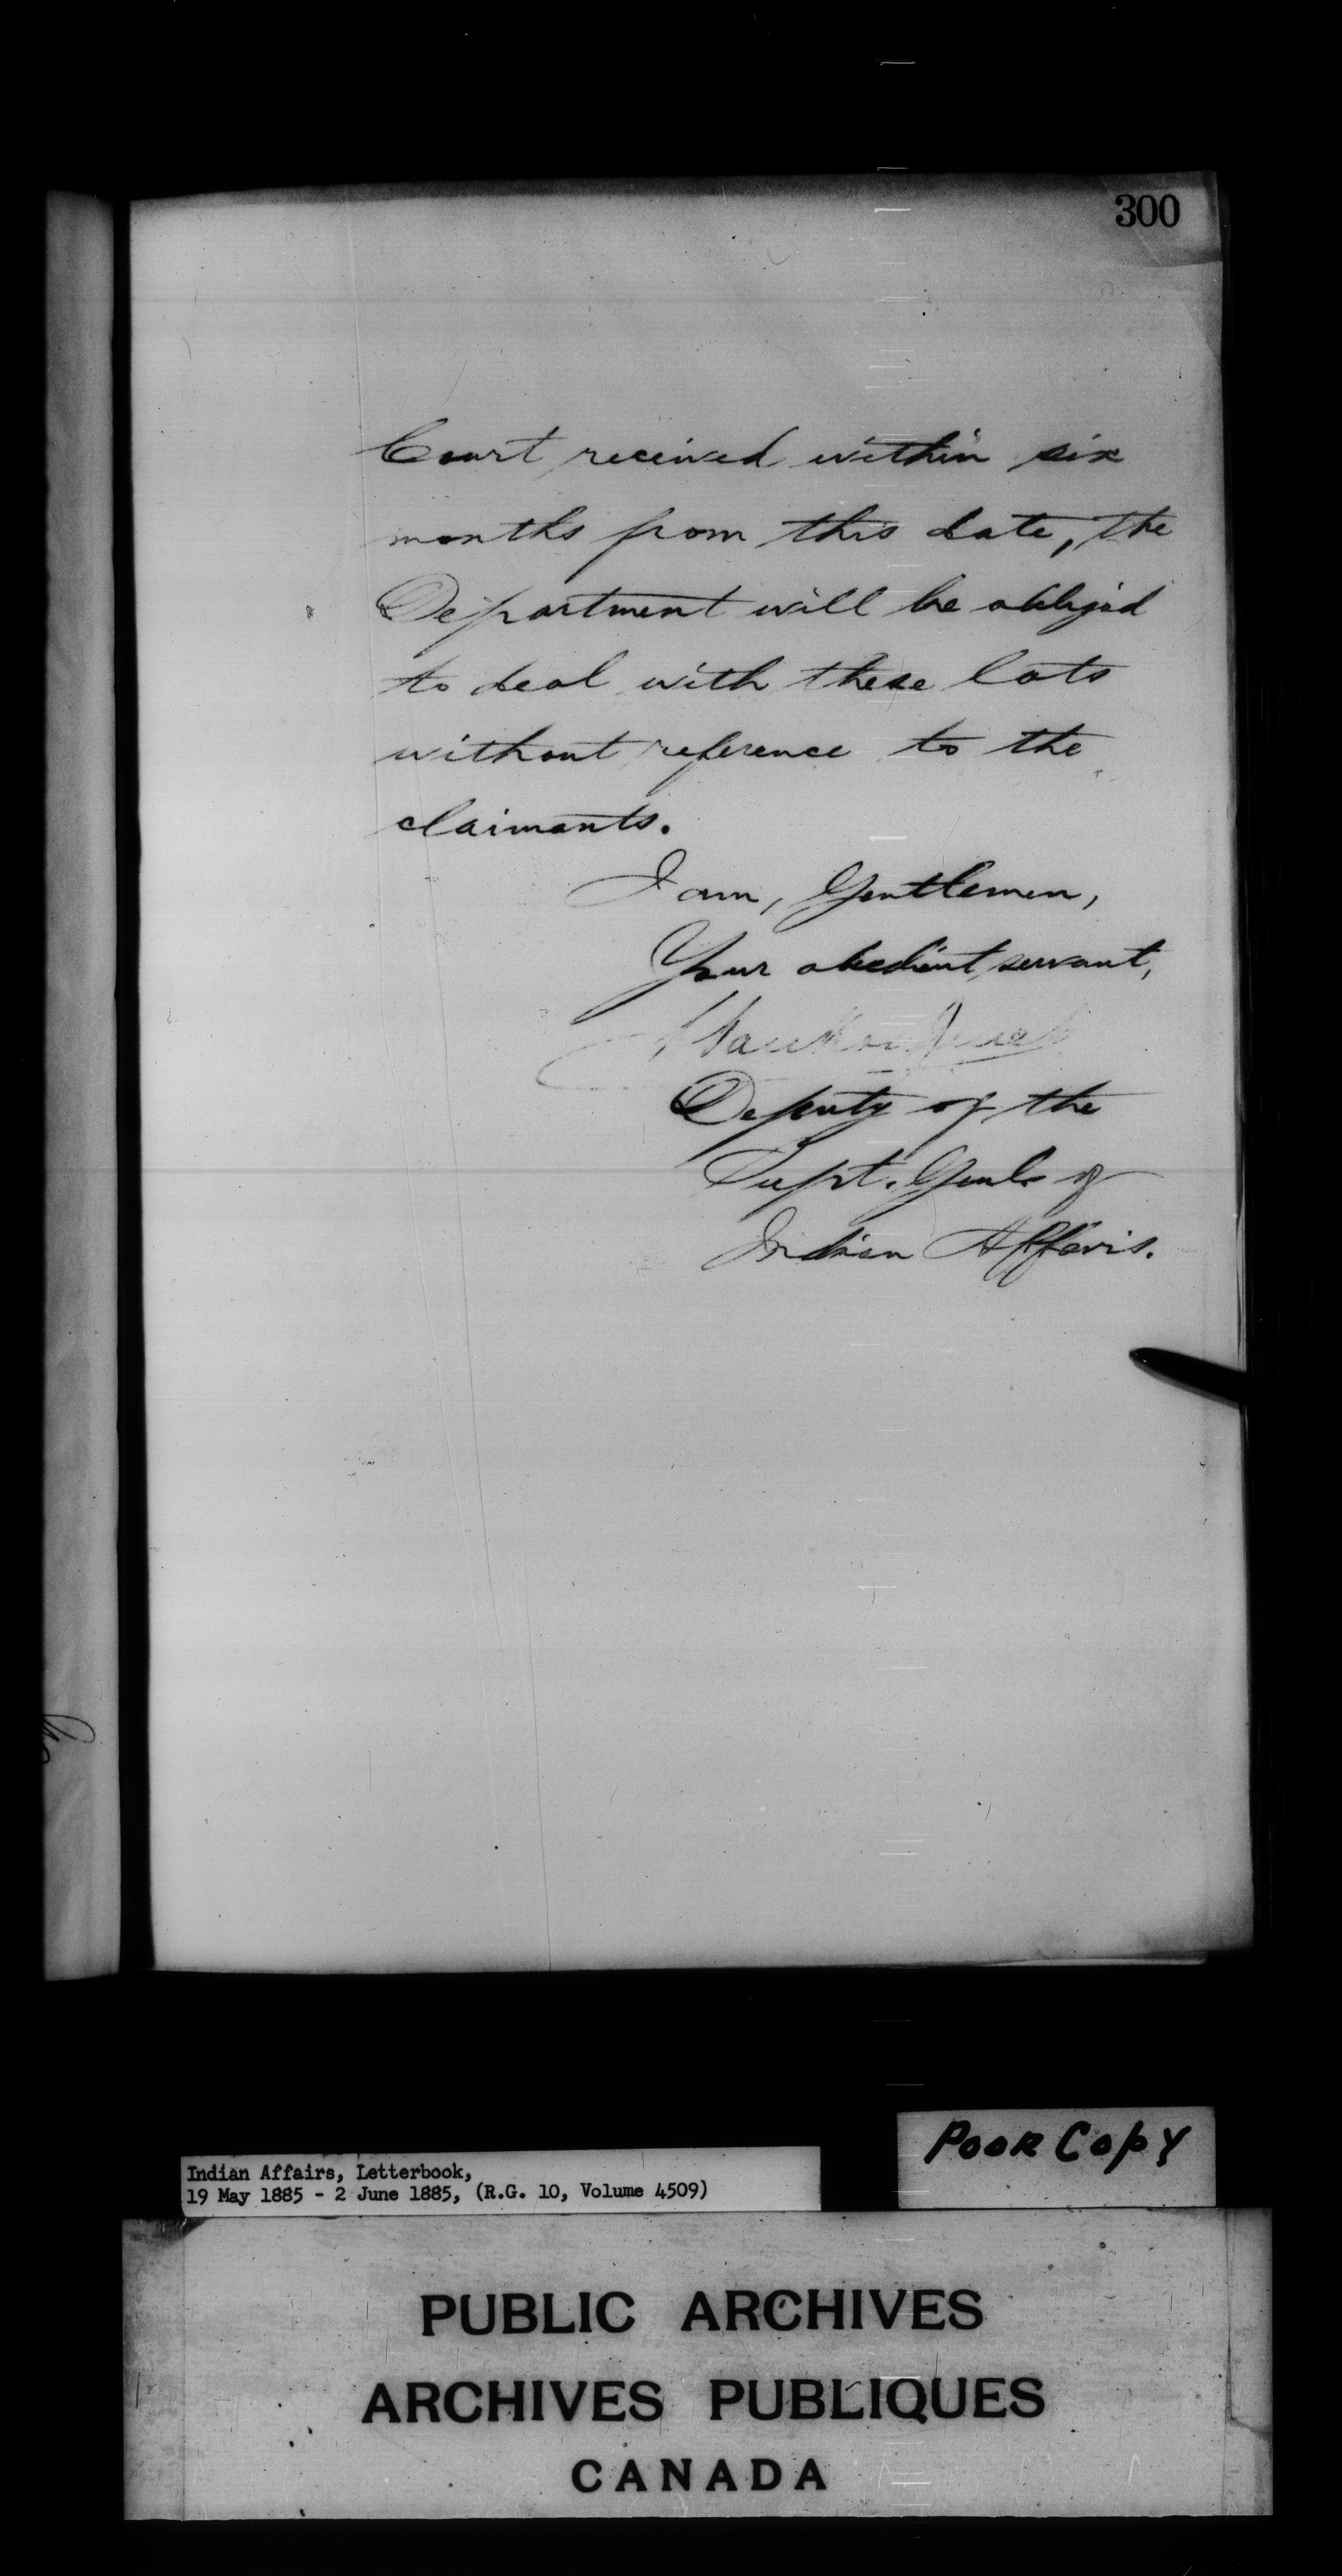 300
Court received within six
months from this date, the
Department will be obliged
to deal with these lots
without reference to the
claimants.
I am, Gentlemen,
Your obedient servant,
Deputy of the
Supt. Genl. of
Indian Affairs.
Poor Copy
Indian Affairs, Letterbook,
19 May 1885 - 2 June 1885, (R.G. 10, Volume 4509)
PUBLIC ARCHIVES
ARCHIVES PUBLIQUES
CANADA